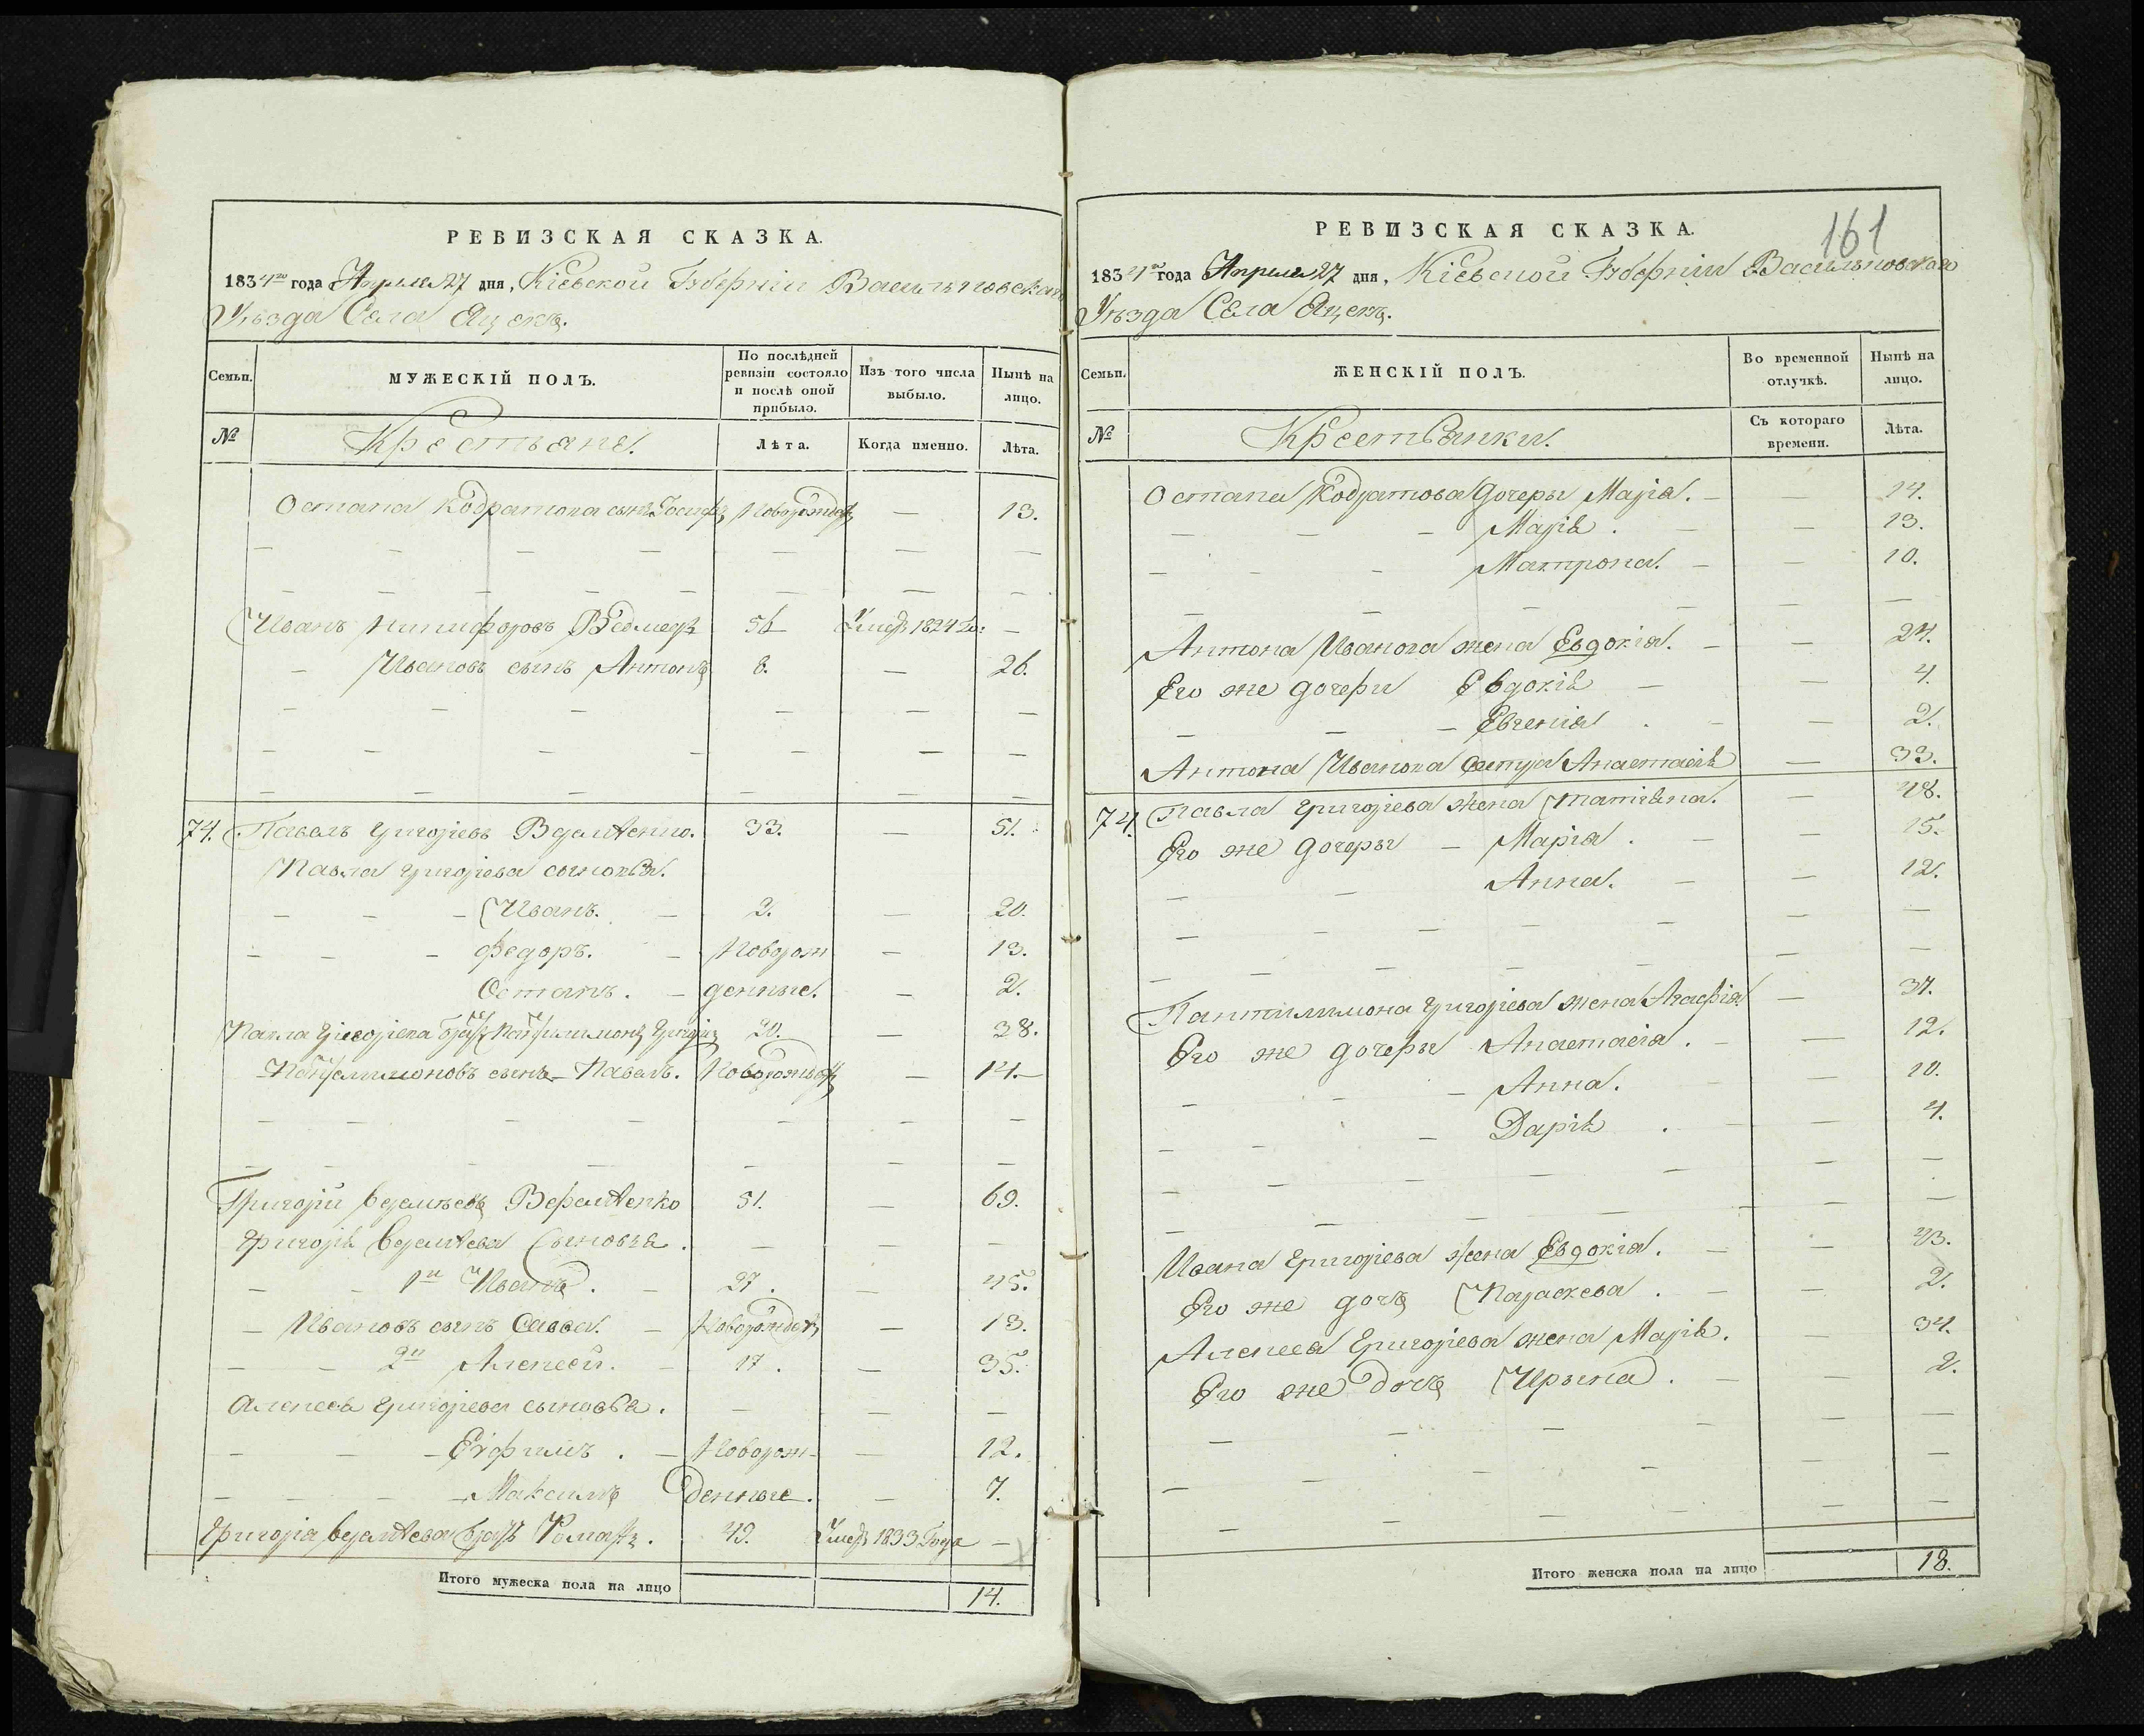 РЕВИЗСКАЯ СКАЗКА.
1834го года Апреля 27 дня, Кіевской Губерніи Васильковскаго
Уѣзда Села Яцекъ.
Семьи. МУЖЕСКІЙ ПОЛЪ. По послѣдней ревизіи состояло и послѣ оной прибыло. Изъ того числа выбыло. Нынѣ на лицо.
№ Крестьяне. Лѣта. Когда именно. Лѣта.
Остапа Кодратова сынъ Іосифъ Новорожден — 13.
Иванъ Никифоровъ Ведмедь 56 Умеръ 1824 го: —
— Ивановъ сынъ Антонъ 8. — 26.
74. Павелъ Григоріевъ 33. — 51.
Павла Григоріева сыновья.
— — — Иванъ. — 2. — 20.
— — — Федоръ. — Новорож — 13.
Остапъ. — денные. — 2.
Павла Григоріева братъ Григор 20. — 38.
сынъ — Павелъ. Новорожден — 14. —
Григорій 51. — 69.
Григорія Сыновья. — — —
— — 1й Иванъ. — 27. — 45.
— Ивановъ сынъ Савва. — Новорожден — 13.
— — 2й Алексей. — 17. — 35.
Алексея Григоріева сыновья. — — —
— — — Ефимъ. — Новорож — — 12.
— — — — Максимъ денные. — 7.
Григорія братъ 49. Умеръ 1833 Года —
Итого мужеска пола на лицо 14.
161
РЕВИЗСКАЯ СКАЗКА.
1834го года Апреля 27 дня, Кіевской Губерніи Васильковскаго
Уѣзда Села Яцекъ.
Семьи. ЖЕНСКІЙ ПОЛЪ. Во временной отлучкѣ. Нынѣ на лицо.
№ Крестьянки. Съ котораго времени. Лѣта.
Остапа Кодратова дочеры Марія. — — 14.
— — — Марія. — — 13.
— — — Матрона. — — 10.
Антона Иванова жена Евдокія. — — 24.
Его же дочери Евдокія — — 4.
— — — Евгенія. — — 2.
Антона Иванова сестра Анастасія — 33.
74. Павла Григоріева жена Татіяна. — 48.
Его же дочеры — Марія. — — 15.
— — Анна. — — 12.
Пантилимона Григоріева жена Агафія — 37.
Его же дочеры Анастасія. — — 12.
— — Анна. — — 10.
— — Дарія. — — 4.
Ивана Григоріева жена Евдокія. — — 43.
Его же дочь Параскева. — — 2.
Алексея Григоріева жена Марія. — 34.
Его же дочь Ирына. — — 2.
Итого женска пола на лицо 18.